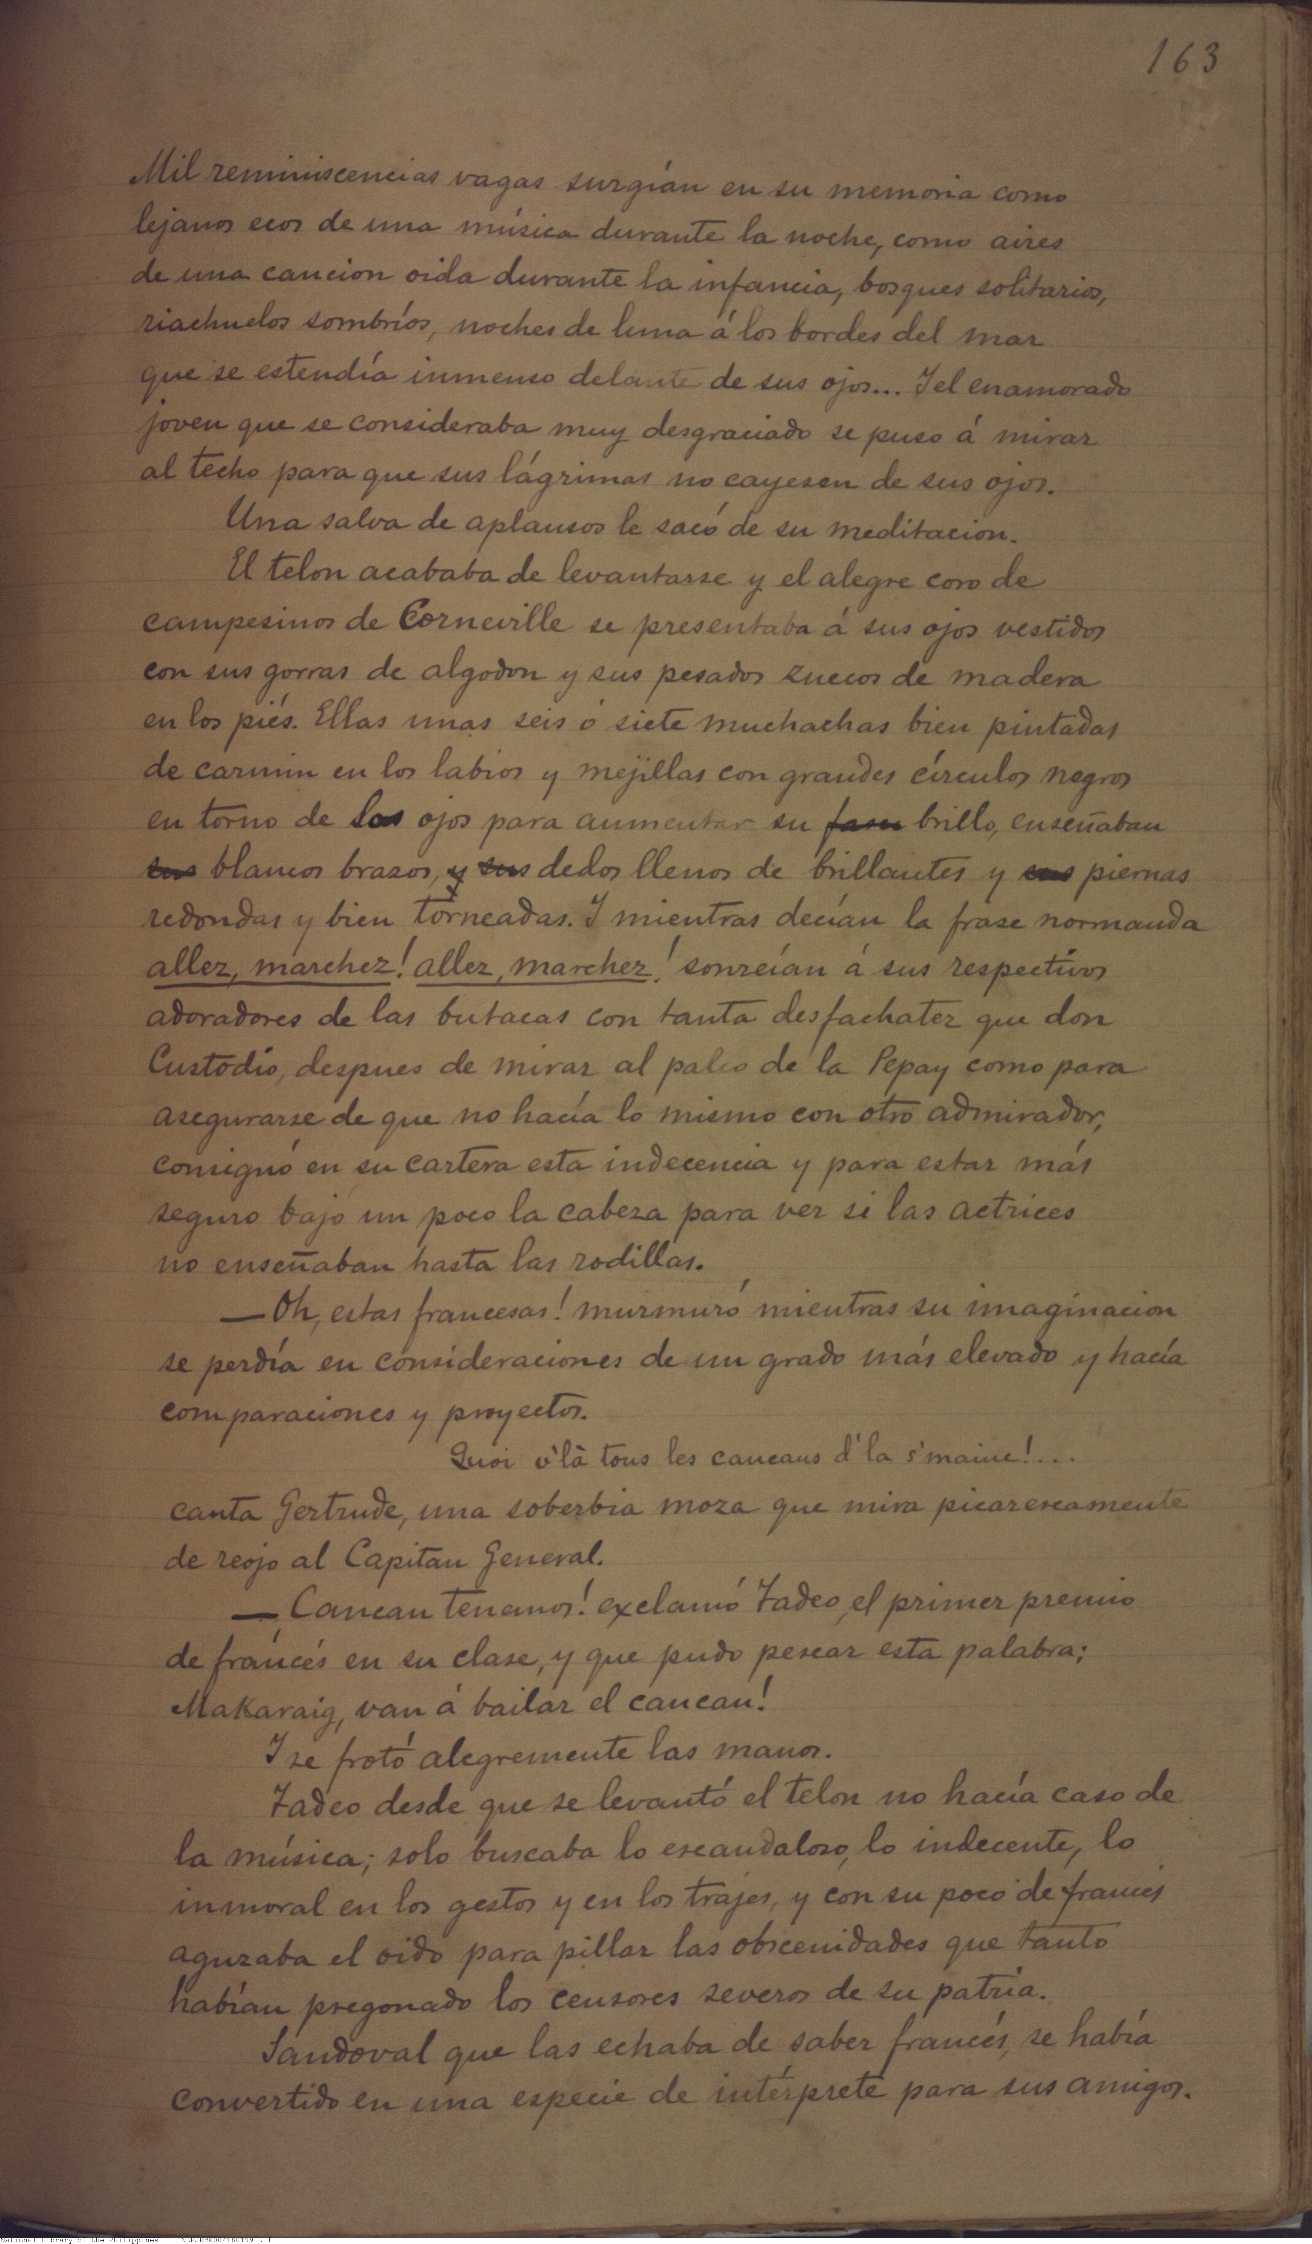 163
Mil reminiscencias vagas surgían en su memoria como
lejanos ecos de una música durante la noche, como aires
de una cancion oida durante la infancia, bosques solitarios,
riachuelos sombríos, noches de luna á los bordes del mar
que se estendía inmenso delante de sus ojos... Y el enamorado
joven que se consideraba muy desgraciado se puso á mirar
al techo para que sus lágrimas no cayesen de sus ojos.
Una salva de aplausos le sacó de su meditacion.
El telon acababa de levantarse y el alegre coro de
campesinos de Corneville se presentaba á sus ojos vestidos
con sus gorras de algodon y sus pesados zuecos de madera
en los piés. Ellas unas seis ó siete muchachas bien pintadas
de carmin en los labios y mejillas con grandes círculos negros
en torno de los ojos para aumentar su brillo, enseñaban
sus blancos brazos, y sus dedos llenos de brillantes y sus piernas
redondas y bien torneadas. Y mientras decían la frase normanda
allez, marchez! allez, marchez! sonreían á sus respectivos
adoradores de las butacas con tanta desfachatez que don
Custodio, despues de mirar al palco de la Pepay como para
asegurarse de que no hacía lo mismo con otro admirador,
consignó en su cartera esta indecencia y para estar más
seguro bajó un poco la cabeza para ver si las actrices
no enseñaban hasta las rodillas.
— Oh, estas francesas! murmuró mientras su imaginacion
se perdía en consideraciones de un grado más elevado y hacía
comparaciones y proyectos.
Quoi v'là tous les cancans d'la s'maine!...
canta Gertrude, una soberbia moza que mira picarescamente
de reojo al Capitan General.
— Cancan tenemos! exclamó Tadeo, el primer premio
de francés en su clase, y que pudo pescar esta palabra;
Makaraig, van á bailar el cancan!
Y se frotó alegremente las manos.
Tadeo desde que se levantó el telon no hacía caso de
la música; solo buscaba lo escandaloso, lo indecente, lo
inmoral en los gestos y en los trajes, y con su poco de francés
aguzaba el oido para pillar las obscenidades que tanto
habían pregonado los censores severos de su patria.
Sandoval que las echaba de saber francés, se había
convertido en una especie de intérprete para sus amigos.